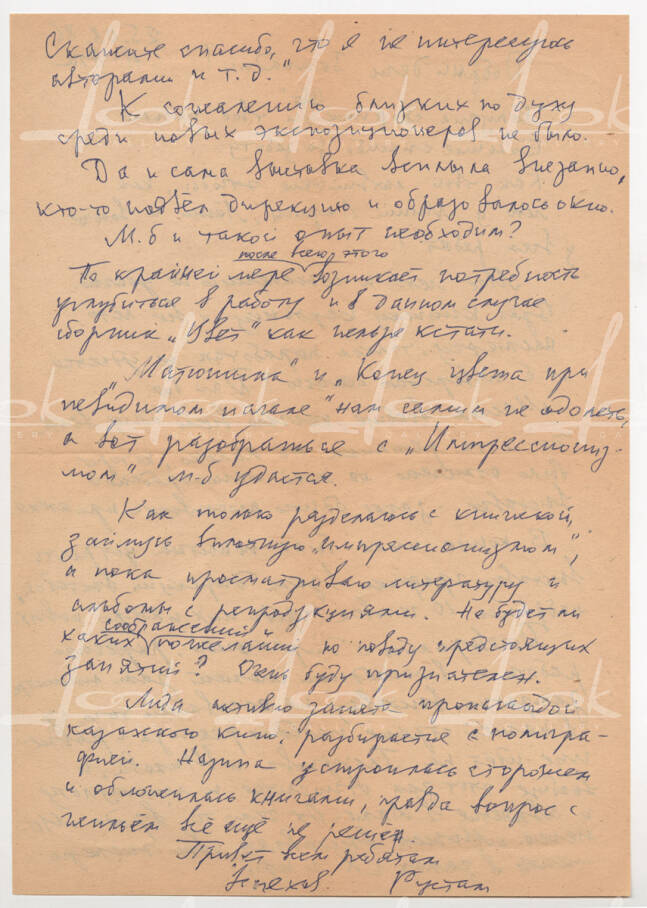 Скажите спасибо, что я не интересуюсь
авторами и т.д."
К сожалению близких по духу
среди новых экспозиционеров не было.
Да и сама выставка всплыла внезапно,
кто-то подвёл дирекцию и образовалось окно.
М.б и такой опыт необходим?
после всего этого
По крайней мере возникает потребность
углубиться в работу и в данном случае
сборник „Цвет" как нельзя кстати.
„Матюшина" и „Конец цвета при
невидимом начале" нам самим не одолеть,
а вот разобраться с „Импрессиониз-
мом" м-б удастся.
Как только разделаюсь с книжкой,
займусь вплотную „импрессионизмом",
а пока просматриваю литературу и
альбомы с репродукциями. Не будет ли
соображений
каких пожеланий по поводу предстоящих
занятий? Очень буду признателен.
Лида активно занята пропагандой
казахского кино, разбирается с полигра-
фией. Назипа устроилась сторожем
и обложилась книгами, правда вопрос с
жильём всё ещё не решён.
Привет всем ребятам
Успехов. Рустам
look